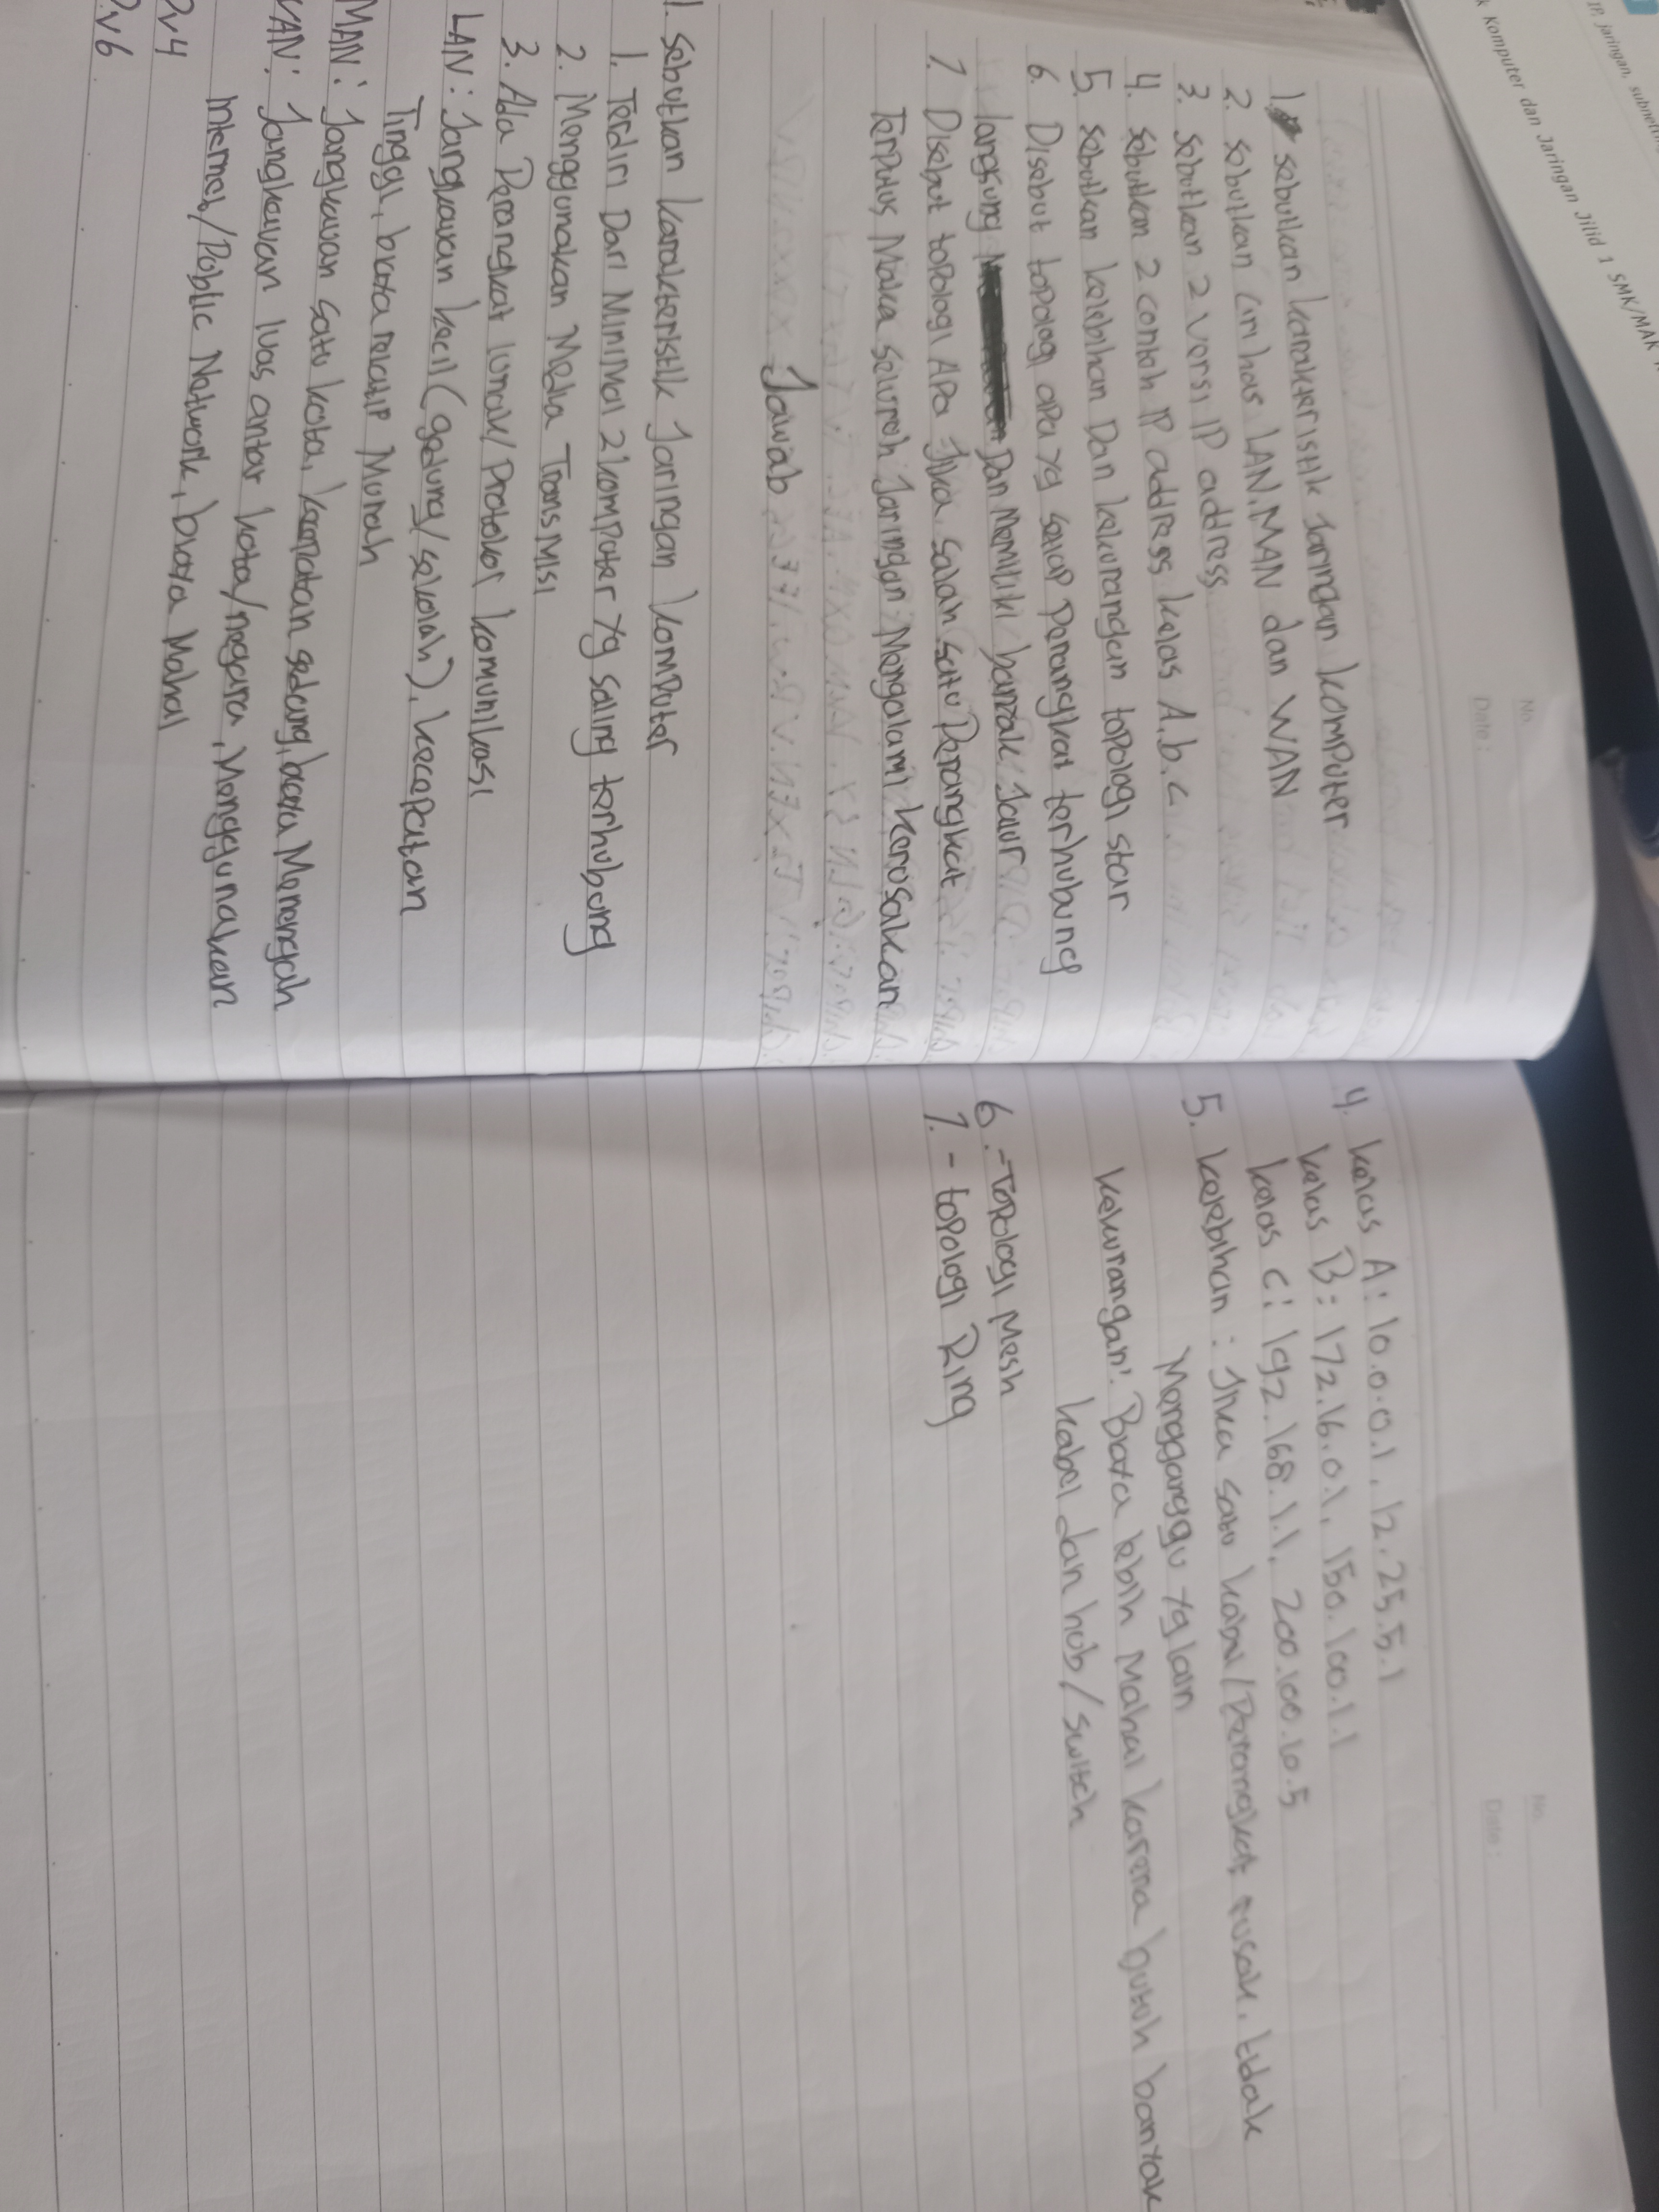 IP, jaringan, subnett
k Komputer dan Jaringan Jilid 1 SMK/MAK
No.
Date :
1. sebutkan karakteristik Jaringan komputer
2. sebutkan ciri khas LAN, MAN dan WAN
3. sebutkan 2 versi IP address
4. sebutkan 2 contoh IP address kelas A.b.c
5. sebutkan kelebihan Dan kekurangan topologi star
6. Disebut topologi apa yg setiap Perangkat terhubung
langsung Dan Memiliki banyak Jalur
7. Disebut topologi APa Jika salah satu Perangkat
Terputus Maka seluruh Jaringan Mengalami kerusakan
Jawab
1. Sebutkan karakteristik Jaringan komputer
1. Terdiri Dari Minimal 2 komputer yg saling terhubung
2. Menggunakan Media TransMisi
3. Ada Perangkat lunak/Protokol komunikasi
LAN : Jangkauan kecil (gedung/sekolah), kecepatan
Tinggi, biaya relatip Murah
MAN : Jangkauan satu kota, kecepatan sedang, biaya Menengah
WAN : Jangkauan luas antar kota/negara, Menggunakan
Internet/Public Network, biaya Mahal
Pv4
Pv6
No.
Date :
4. kelas A: 10.0.0.1, 12.25.5.1
kelas B: 172.16.0.1, 150.100.1.1
kelas C: 192.168.1.1, 200.100.10.5
5. kelebihan : Jika satu kabel/Perangkat rusak, tidak
Mengganggu yg lain
kekurangan: Biaya lebih Mahal karena butuh banyak
kabel dan hub/switch
6. -Topologi Mesh
7. - topologi Ring